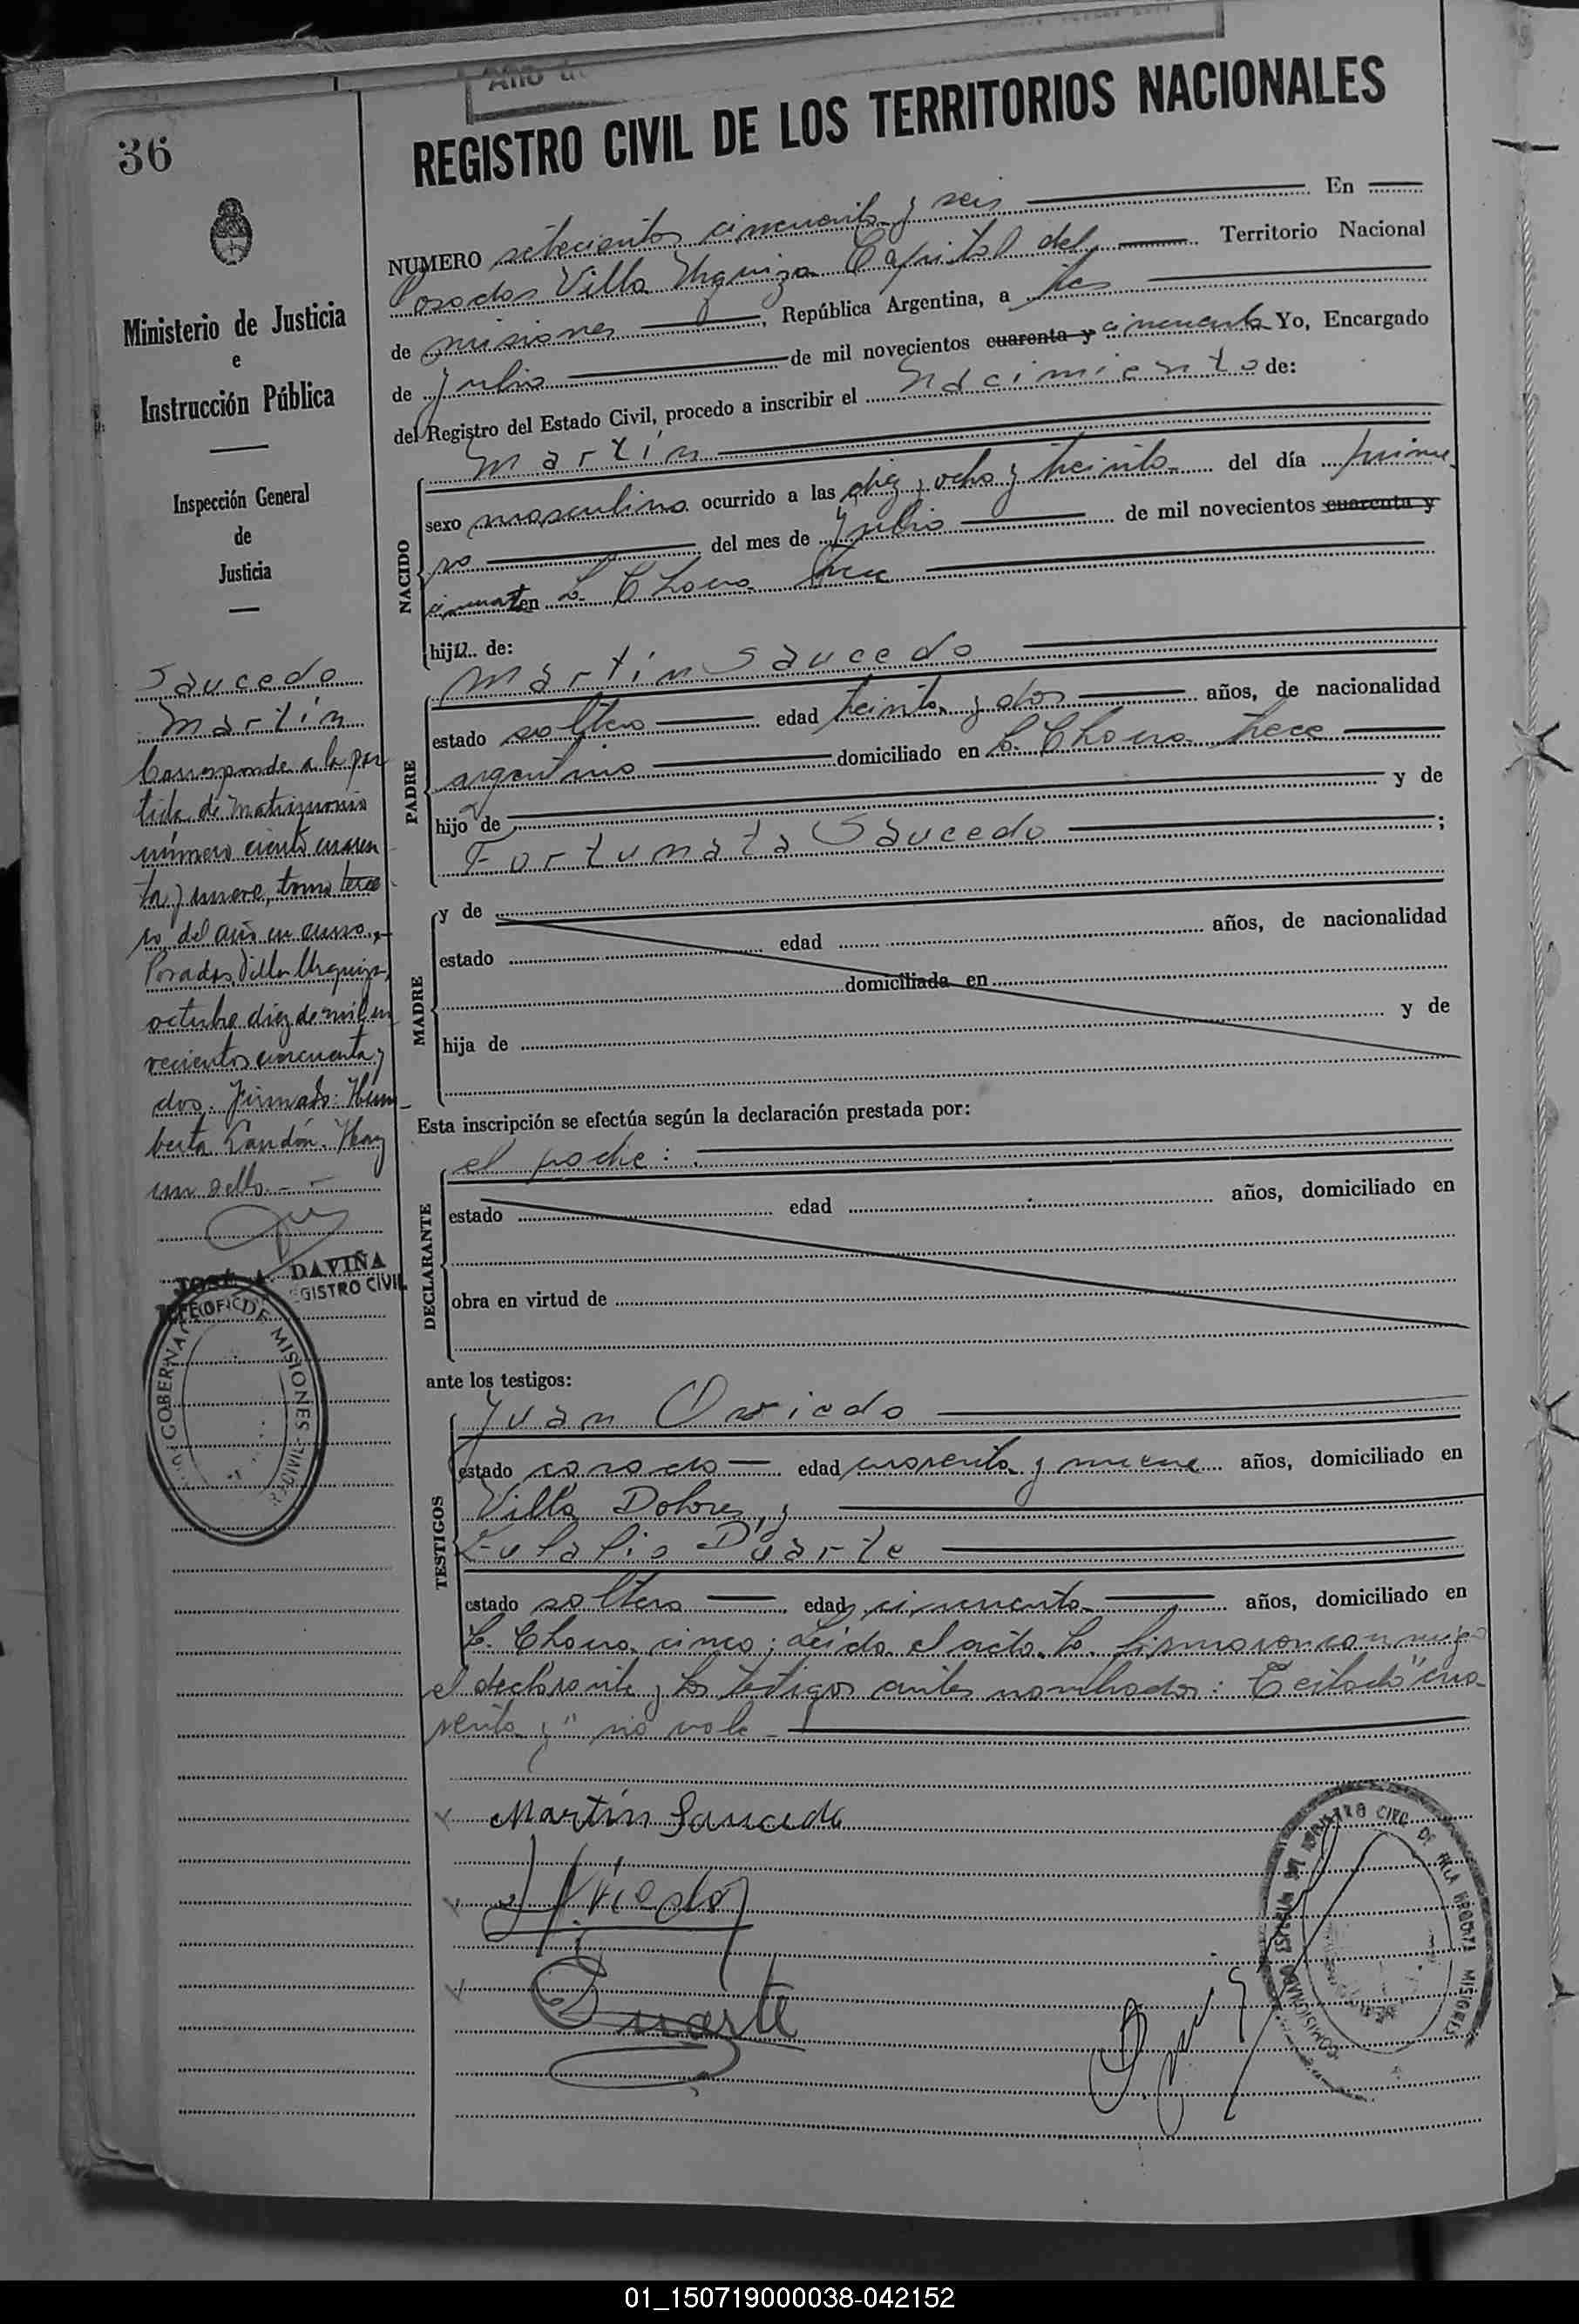 Año de
36
REGISTRO CIVIL DE LOS TERRITORIOS NACIONALES
NUMERO setecientos cincuenta y seis En
Posadas Villa Urquiza Capital del Territorio Nacional
de misiones, República Argentina, a tres
de Julio de mil novecientos cuarenta y cincuenta Yo, Encargado
del Registro del Estado Civil, procedo a inscribir el Nacimiento de:
Ministerio de Justicia
e
Instrucción Pública
Inspección General
de
Justicia
NACIDO
Martín
sexo masculino ocurrido a las diez y ocho y treinta del día prime-
ro del mes de Julio de mil novecientos cuarenta y
en La Chacra trece
hijo de:
PADRE
Martín Saucedo
estado soltero edad treinta y dos años, de nacionalidad
argentino domiciliado en La Chacra trece
hijo de y de
Fortunata Saucedo ;
MADRE
y de
estado edad años, de nacionalidad
domiciliada en
hija de y de
Esta inscripción se efectúa según la declaración prestada por:
DECLARANTE
el padre :
estado edad años, domiciliado en
obra en virtud de
ante los testigos:
TESTIGOS
Juan Oviedo
estado casado edad cuarenta y nueve años, domiciliado en
Villa Dolores y
Eulalio Duarte
estado soltero edad cincuenta años, domiciliado en
La Chacra cinco; Leida el acta la firmaron conmigo
el declarante y los testigos antes nombrados: Testado "cua-
renta y" no vale
Martín Saucedo
Oviedo
Duarte
Saucedo
Martín
Corresponde a la par
tida de matrimonio
número ciento cuaren
ta y nueve, tomo terce
ro del año en curso.-
Posadas, Villa Urquiza,
octubre diez de mil no
vecientos cincuenta y
dos. Firmado: Hum-
berto Landón. Hay
un sello.-
JOSÉ A. DAVIÑA
JEFE OFIC. REGISTRO CIVIL
GOBERNACION DE MISIONES
R. CIVIL
REGISTRO CIVIL DE VILLA URQUIZA MISIONES
01_150719000038-042152